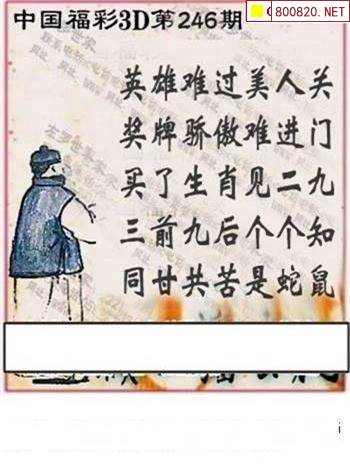 800820.NET
中国福彩3D第246期
英雄难过美人关
奖牌骄傲难进门
买了生肖见二九
三前九后个个知
同甘共苦是蛇鼠
i